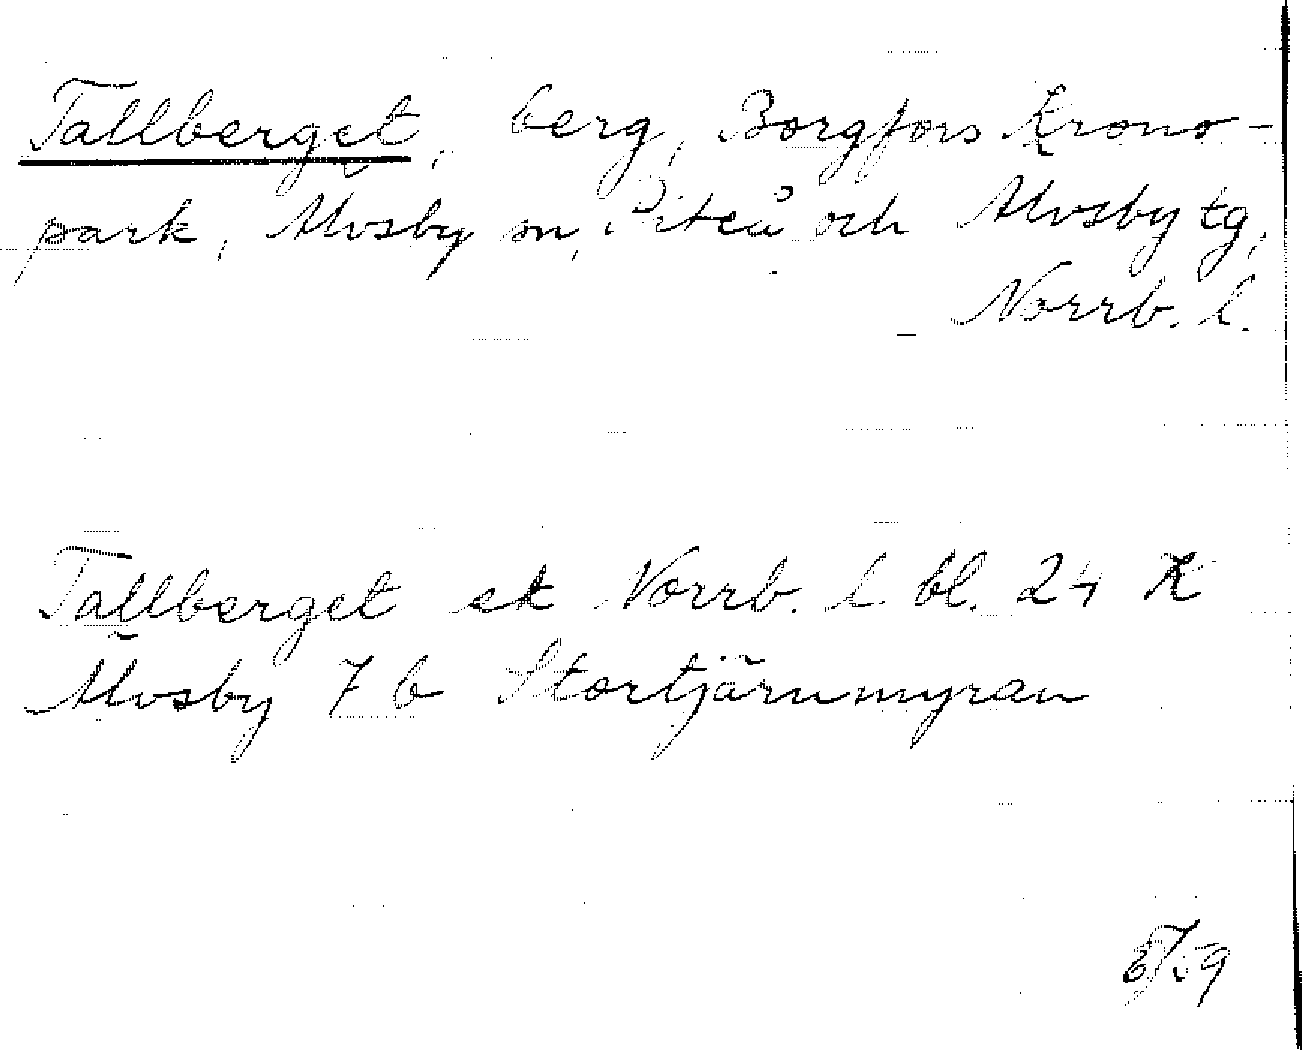 Tallberget, berg, Borgfors Krono-
park, Älvsby sn, Piteå och Älvsby tg,
Norrb. l.
Tallberget ek Norrb. l. bl. 24 K
Älvsby 7 b Stortjärnmyran